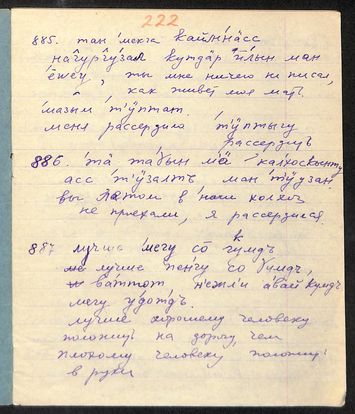 222
885. тан мекга кайӈӈа̄сс
наӷурӷу́зал кутда̄р и́лын ман
ёжеу, ты мне ничего не писал,
как живёт моя мать.
ма́зым тӱ́птат
меня рассердило тӱ́птыгу
рассердить
886. та̄ та́ɓын ме̄ калхоскынты
асс тӱ́залтъ ман тӱ́узан
вы летом в наш колхоз
не приехали, я рассердился
887 лучше мегу со к гумдъ
лучше пе́нгу со ӷумдъ,
ва́ттот не́жли аво́й кумдъ
мегу удо́ӷдъ.
лучше хорошему человеку
положить на дорогу, чем
плохому человеку положить
в руки